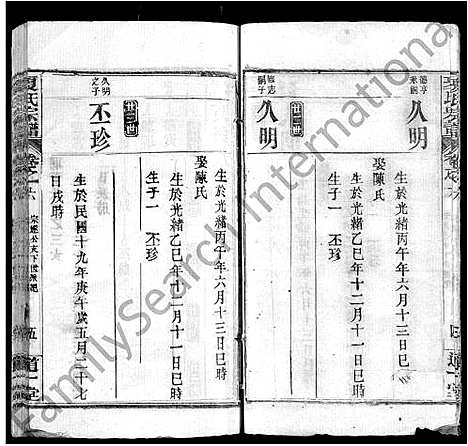 德亨
承嗣
久明
生於光緒丙午年六月十三日巳時
娶陳氏
生於光緒乙巳年十二月十一日巳時
生子一 丕珍
德志
嗣子
久明
生於光緒丙午年六月十三日巳時
娶陳氏
生於光緒乙巳年十二月十一日巳時
生子一 丕珍
廿三世
久明
之子
丕珍
生於民國十九年庚午歲五月二十七
日戌時
氏宗譜
卷之六
五
道一堂
FamilySearch International